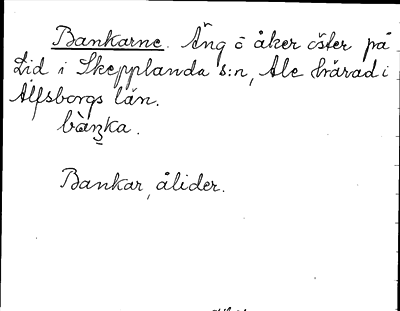 Bankarne. Äng o åker öster på
Lid i Skepplanda s:n, Ale härad i
Älfsborgs län.
bànka.
Bankar, ålider.